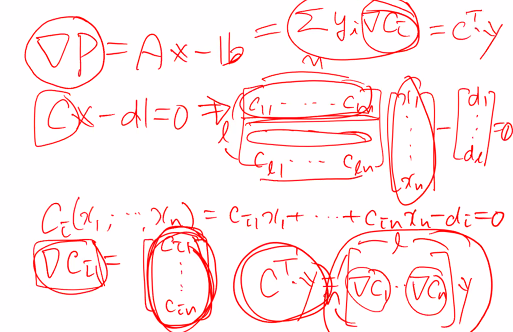 ∇P = Ax - b = Σ yᵢ ∇Cᵢ = Cᵀy
Cx - d = 0 ⇒ l [c₁₁ ⋯ c₁ₙ / cₗ₁ ⋯ cₗₙ] n [x₁ ⋮ xₙ] - [d₁ ⋮ dₗ] = 0
Cᵢ(x₁, ⋯, xₙ) = cᵢ₁x₁ + ⋯ + cᵢₙxₙ - dᵢ = 0
∇Cᵢ = [cᵢ₁ ⋮ cᵢₙ] Cᵀ·y = n [∇C₁ · ∇Cₙ] l y